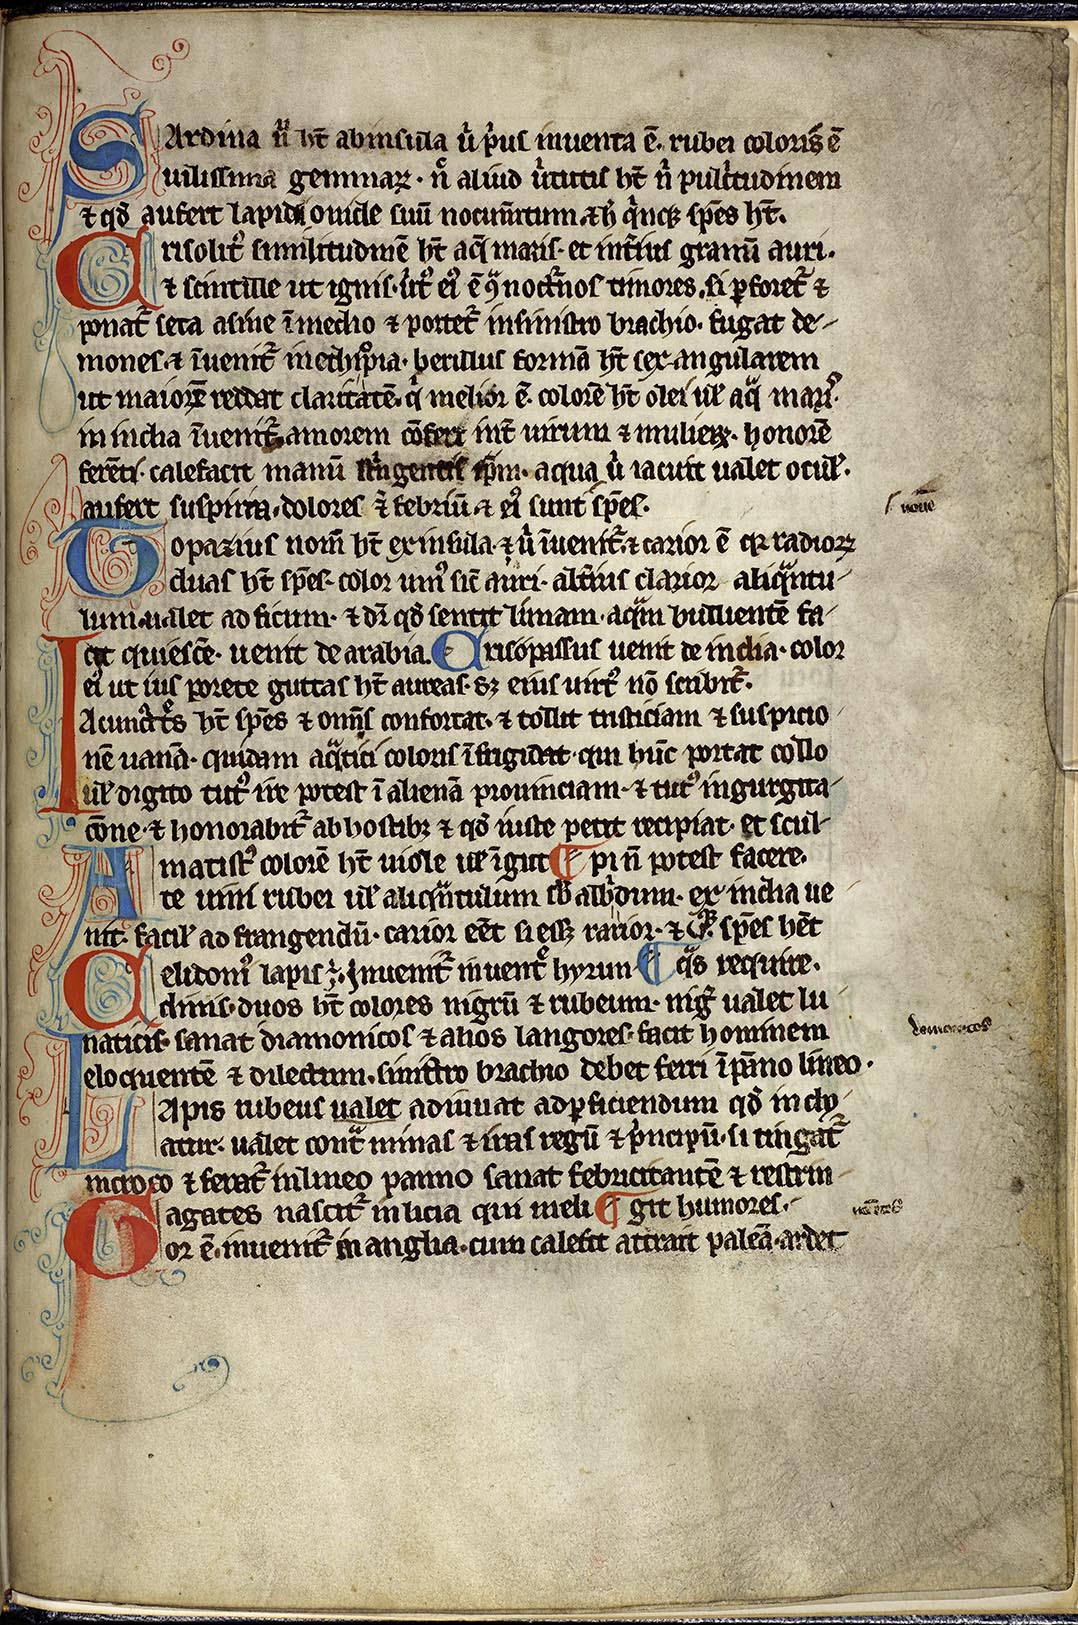 SArdina nͫ ht̄ ab insula u̇ p̓us inuenta ē. rubei coloris ē
uilissima gemmaꝝ. n̄ aliud u̓tutis ht̄ n̄ pulc̓tudinem
⁊ qd̄ aufert lapidi onicle suū nocum̄tum. ⁊ h̓ q̓nꝗ sp̄es ht̄.
Crisolitꝰ similitudinē ht̄ aq̄ maris. et int̓ius granū auri.
⁊ scintille ut ignis. u̓tꝰ eiꝰ ē ꝯ noct̓nos timores. si ꝑforet̓ ⁊
ponat̓ seta asine ī medio ⁊ portet̓ in sinistro brachio. fugat de
mones. ⁊ īuenit̓ in ethyopia. berillus formā ht̄ sex angularem
ut maiorē reddat claritatē. q̓ melior ē. colorē ht̄ olei ul̓ aq̄ marꝭ.
in india īuenit̓. amorem cōfert int̓ uirum ⁊ mulierē. honorē
ferēti. calefacit manū st̓ngentis ip̄m. aqua u̓ iacuit ualet ocul̓.
aufert suspiria. dolores ⁊ febriū. ⁊ eiꝰ sunt sp̄es.
noue
Topazius nom̄ ht̄ ex insula. ⁊ u̓ īuenit̓. ⁊ carior ē
duas ht̄ sp̄es. color uniꝰ sic̄ auri. alt̓ius clarior aliqͣntu
lum. ualet ad ficum. ⁊ dr̄ qd̄ sentit lunam. aqͣm bullientē fa
cit quiescē. uenit de arabia. Crisopassus uenit de india. color
eiꝰ ut ius porete guttas ht̄ aureas. sꝫ eius uirtꝰ nō scribit̓.
Iacunctꝰ ht̄ sp̄es ⁊ om̄s confortat. ⁊ tollit tristiciam ⁊ suspicio
nē uanā. quidam aqͣtici coloris īfrigidat. qui hūc portat collo
ul̓ digito tutꝰ ire potest ī alienā prouinciam. ⁊ tutꝰ ingurgita
cōne. ⁊ honorabit̓ ab hostibꝫ ⁊ qd̄ iuste petit recipiat. et scul
Amatistꝰ colorē ht̄ uiole ul̓ ¶ pi n̄ potest facere.
te uini rubei ul̓ aliqͣntulum alb̓dinn. ex india ue
nit. facil̓ ad frangendū. carior eēt si eēt rarior. ⁊ sp̄es ht̄
Celidoniꝰ lapis inuenit̓ in uent̓ hyrun ¶ qͣs require.
dinis. duos ht̄ colores nigrū ⁊ rubeum. nig̓ ualet lu
naticis. sanat diamonicos ⁊ alios langores. facit hominem
demonicos
eloquentē ⁊ dilectum. sinistro brachio debet ferri ī pāno lineo.
Lapis rubeus ualet adiuuat ad ꝑficiendum qd̄ incho
atur. ualet cont̓ minas ⁊ iras regū ⁊ p̓ncipū. si tingat̓
in croco ⁊ ferat̓ in lineo panno sanat febricitantē ⁊ restrin
Gagates nascit̓ in licia qui meli ¶ git humores.
or ē. inuenit̓ in anglia. cum calefit attrait paleā. ardet